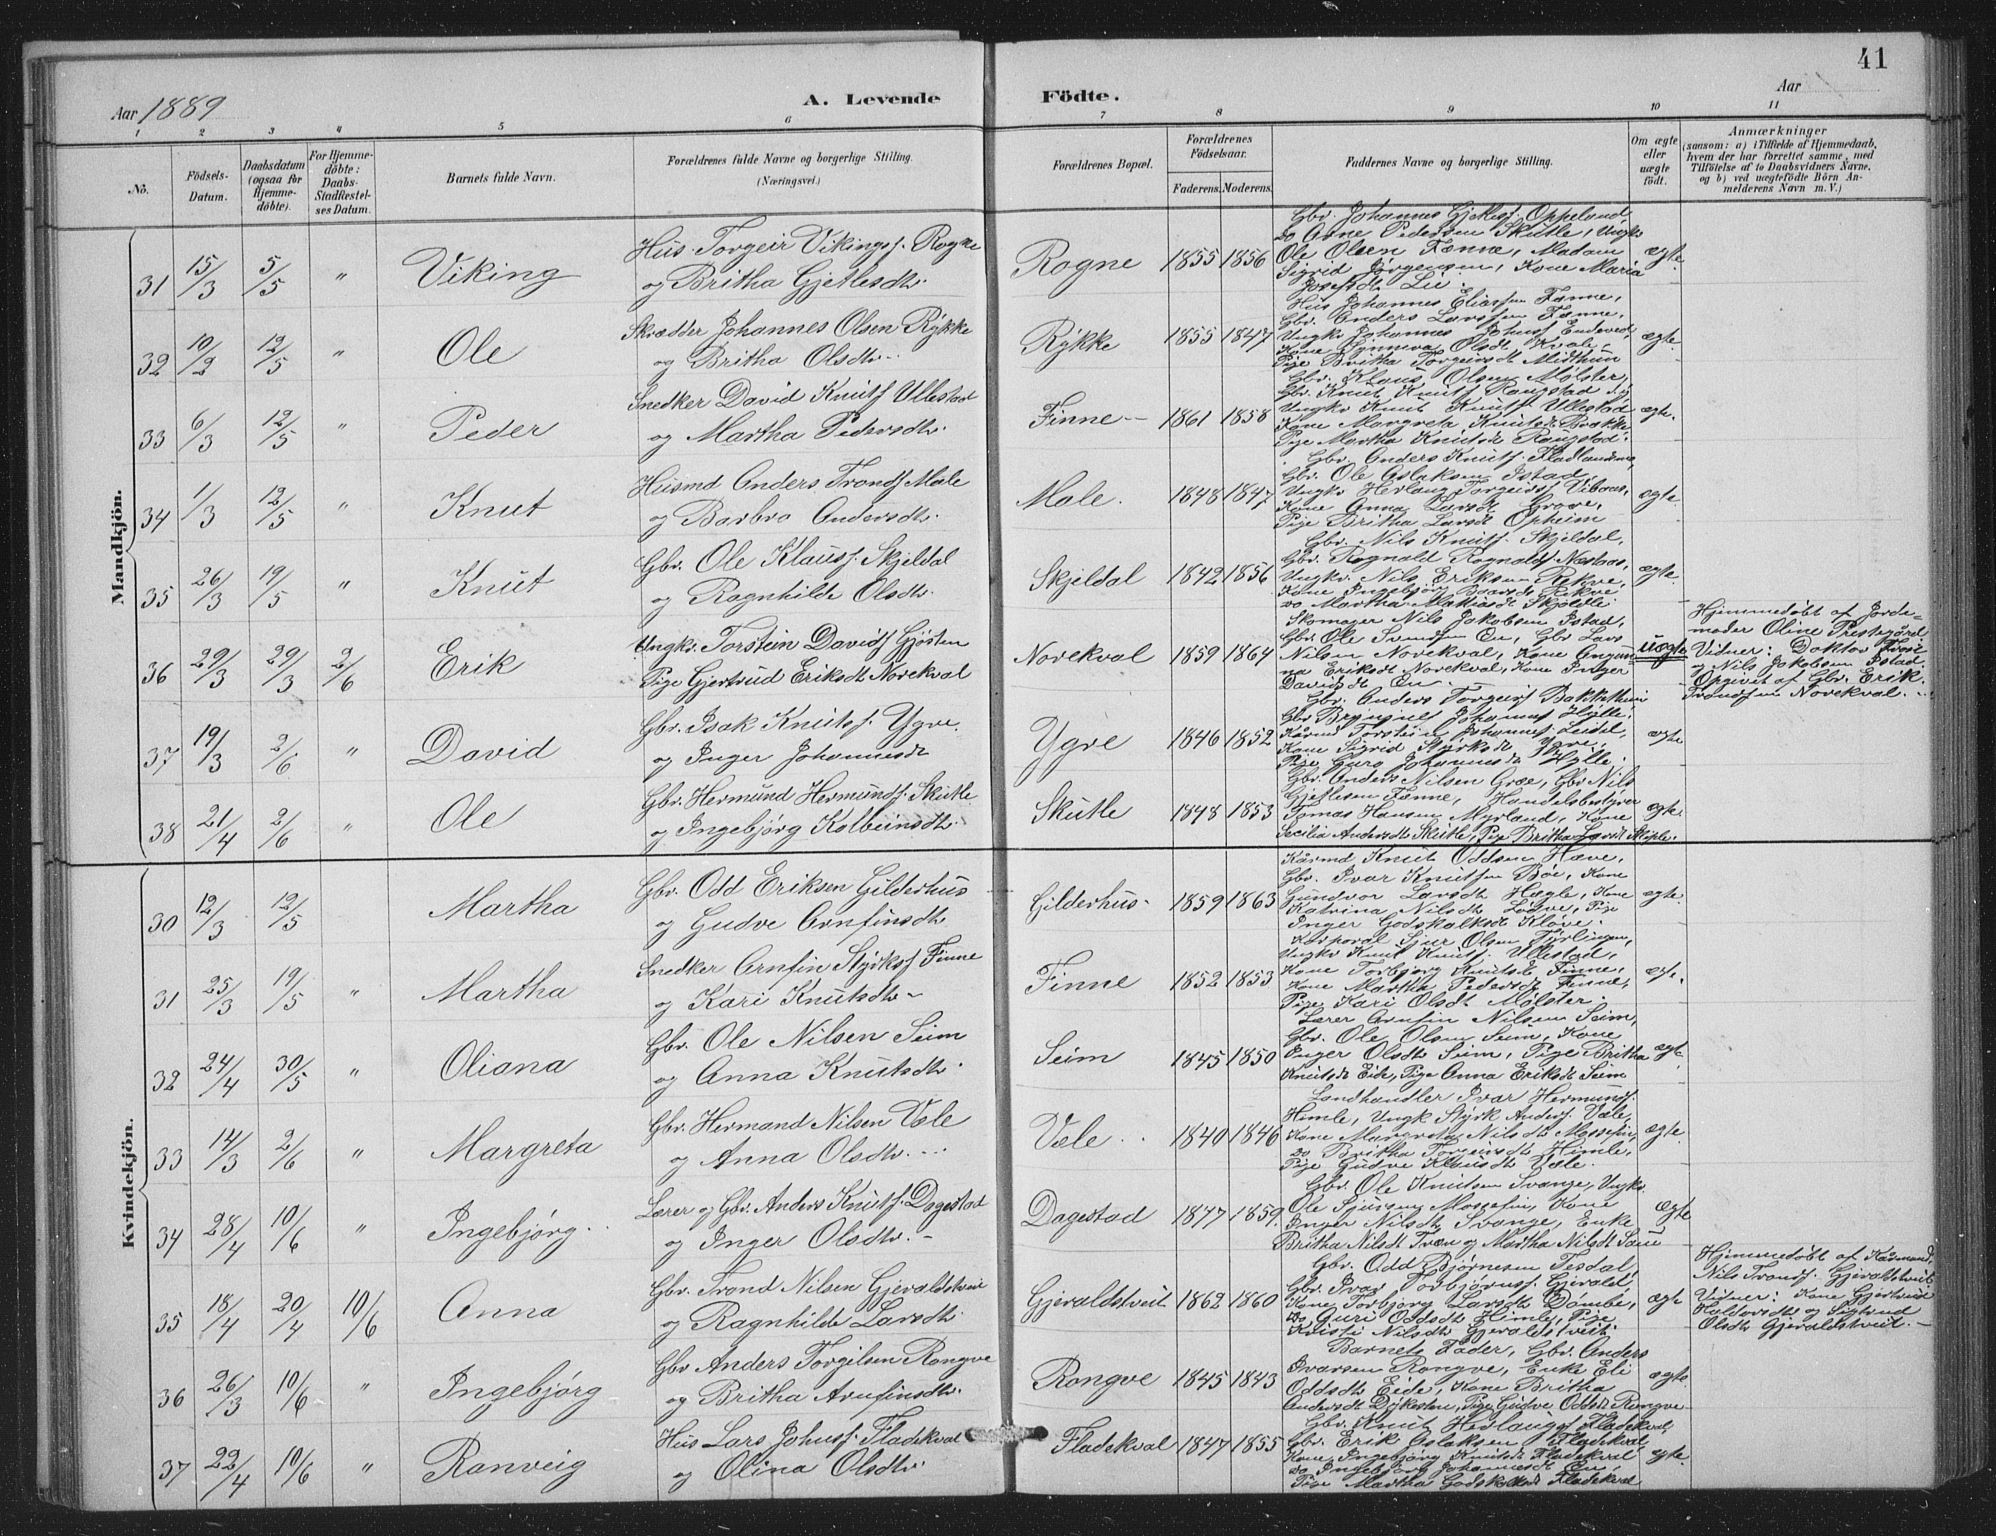 41
Aar 1889
A. Levende Födte.
Aar
1 2 3 4 5 6 7 8 9 10 11
No.
Födsels-Datum.
Daabsdatum (ogsaa for Hjemme-döbte).
For Hjemme-döbte: Daabs-Stadfæstel-ses Datum.
Barnets fulde Navn.
Forældrenes fulde Navne og borgerlige Stilling. (Næringsvei.)
Forældrenes Bopæl.
Forældrenes Födselsaar.
Faderens. Moderens.
Faddernes Navne og borgerlige Stilling.
Om ægte eller uægte født.
Anmærkninger
(saasom: a) i Tilfælde af Hjemmedaab,
hvem der har forrettet samme, med
Tilföielse af to Daabsvidners Navne,
og b) ved uægtefödte Börn An-
melderens Navn m. V.)
Mandkjön.
31 15/3 5/5 " Viking
Hus. Torgeir Vikingsf. Rogne
og Britha Gjetlesdtr.
Rogne 1855 1856
Gbr. Johannes Gjetlesf. Oppeland,
do Arne Pedersen Skutle, Ungk.
Ole Olsen Fænne, Madam
Sigrid Jørgensen, Kone Maria
Josefsdt Lie.
ægte.
32 10/2 12/5 " Ole
Skrædder Johannes Olsen Rykke
og Britha Olsdtr.
Rykke 1855 1847
Hus Johannes Eliassen Fænne,
Gbr. Anders Larssen Fænne,
Ungkr Johannes Johnsf Endeved,
Kone Synneva Olsdt Kvale,
Pige Britha Torgeirsdt Midthun
ægte.
33 6/3 12/5 " Peder
Snedker David Knutsf Ullestad
og Martha Pedersdtr.
Finne 1861 1858
Gbr. Klaus Olsen Mølster,
Gbr. Knut Knutsf. Rongstad,
Ungkr Knut Knutsf. Ullestad
Kone Margreta Knutsdt Brække
Pige Martha Knutsdt Rongstad.
ægte.
34 1/3 12/5 " Knut
Husmd Anders Trondsf Male
og Barbro Andersdtr.
Male. 1848 1847
Gbr. Anders Knutsf. Fladlandsmo,
Gbr. Ole Aslaksen Istad
Ungkr Herlaug Torgeirsf Viboas,
Kone Anna Larsdt Grove,
Pige Britha Larsdt Opheim
ægte
35 26/3 19/5 " Knut
Gbr. Ole Klausf. Skjeldal
og Ragnhilde Olsdtr.
Skjeldal 1842 1856
Gbr. Nils Knutsf. Skjeldal,
Gbr. Rognald Rognaldsf Næstaas,
Ungkr. Nils Eriksen Rekve,
Kone Ingebjør Baarsdt Rekve
do Martha Mathiasdt Skjeldle
ægte.
36 29/3 29/3 2/6 Erik
Ungkr. Torstein Davidsf Gjøstein
Pige Gjertrud Eriksdt Norekval
Norekval 1859 1864
Skomager Nils Jakobsen Istad,
Gbr. Ole Svendsen En, Gbr Lars
Nilsen Norekval, Kone Ingun-
na Eriksdt Norekval, Kone Inger
Davidsdt En
uægte
Hjemmedøbt af Jorde-
moder Oline Prestegård
Vitner: Doktor
og Nils Jakobsen Istad.
Opgivet af Gbr. Erik
Trondsen Norekval.
37 19/3 2/6 " David
Gbr. Isak Knutsf. Ygre.
og Inger Johannesdt
Ygre 1846 1852
Gbr. Anders Torgeirsf Bakkethun
Gbr Brynjulf Johannesf Hylle,
Kårmd Torstein Johannesf Leidal,
Kone Sigrid Styrksdt Ygre,
Pige Guro Johannesdt Hylle.
ægte
38 21/4 2/6 " Ole
Gbr. Hermund Hermundsf. Skutle
og Ingebjørg Kolbeinsdtr.
Skutle 1848 1853
Gbr. Anders Nilsen Græe, Gbr Nils
Gjetlesen Fænne, Handelsbestyrer
Tomas Hansen Myrland, Kone
Secilia Andersdt Skutle, Pige Britha Larsdt Skiple.
ægte.
Kvindekjön.
30 12/3 12/5 Martha
Gbr. Odd Eriksen Gilderhus
og Gudve Arnfinsdtr
Gilderhus 1859 1863
Kårmd Knut Oddsen Hæve,
Gbr. Ivar Knutsen Bøe, Kone
Gundvor Larsdt Hægle, Kone
Katrina Nilsdt Lødve, Pige
Inger Godskalksdt Kløve.
ægte.
31 25/3 19/5 " Martha
Snedker Arnfin Styrksf Finne
og Kari Knutsdtr
Finne 1852 1853
Korporal Sjur Olsen Tirlingen,
Ungkr Knut Knutsf. Ullestad,
Kone Torbjørg Knutsdt Finne,
Kone Martha Pedersdt Finne,
Pige Kari Olsdt Mølster.
ægt.
32 24/4 30/5 " Oliana
Gbr. Ole Nilsen Seim
og Anna Knutsdtr.
Seim 1845 1850
Lærer Arnfin Nilsen Seim,
Gbr. Ole Olsen Seim, Kone
Inger Olsdtr Seim, Pige Britha
Knutsdt Eide, Pige Anna Eriksdt Seim
ægt.
33 14/3 2/6 " Margreta
Gbr. Hermand Nilsen Væle
og Anna Olsdtr.
Væle 1840 1846
Landhandler Ivar Hermunds.
Himle, Ungk Styrk Andersf. Væle,
Kone Margreta Nilsdt Mossefin,
do Britha Torgeirsdt Himle,
Pige Gudve Klausdt Væle.
ægte.
34 28/4 10/6 " Ingebjørg
Lærer og Gbr. Anders Knutsf. Dagestad
og Inger Olsdtr.
Dagestad 1847 1859.
Gbr. Ole Knutsen Svange, Ungkr.
Ole Sjursen Mossefin, Kone
Inger Nilsdt Svange, Enke
Britha Nilsdt Træn og Martha Nilsdt Saue
ægte
35 18/4 20/4 10/6 Anna
Gbr. Trond Nilsen Gjeraldstveit
og Ragnhilde Larsdtr.
Gjeraldstveit 1862 1860
Gbr. Odd Bjørnesen Tesdal,
Gbr. Ivar Torbjørnsf. Gjerald
Kone Torbjørg Larsdt Dømbe,
do Guri Oddsdt Himle, Pige
Kristi Nilsdt Gjeraldstveit.
ægte
Hjemmedøbt af Kårmand
Nils Trondsf. Gjeraldstveit
Vitner: Kone Gjertrud
Haldorsdtr og Sigtrud
Olsdtr Gjeraldstveit.
36 26/3 10/6 " Ingebjørg
Gbr Anders Torgilsen Rongve
og Britha Arnfinsdtr.
Rongve 1845 1843
Barnets Fader, Gbr. Anders
Ivarsen Rongve, Enke Eli
Oddsdtr Eide, Kone Britha
Andersdt Dyksten, Pige Gudve Oddsdt Rongve
ægte.
37 22/4 10/6 " Ranveig
Hus Lars Johnsf. Fladekval
og Olina Olsdtr.
Fladekval 1847 1855
Gbr. Knut Herlaugsf Fladekval,
Gbr. Erik Aslaksen Fladekval,
Kone Ingebjørg Knutsdt Fladekval
do Ingebjørg Johannesdt En,
Pige Martha Godskalksdt Fladekval
ægte.